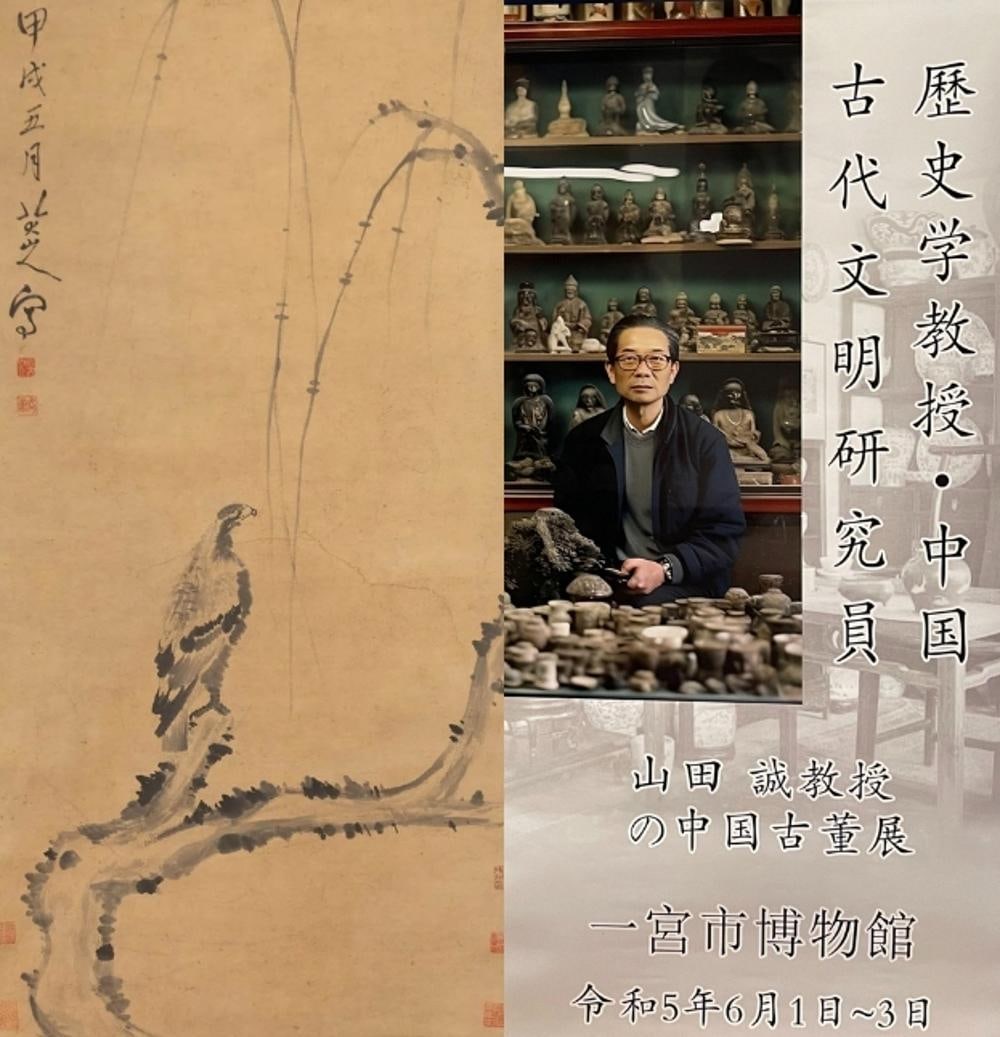 甲戌五月八大山人寫
歷史学教授・中国
古代文明研究員
山田 誠教授
の中国古董展
一宮市博物館
令和5年6月1日~3日